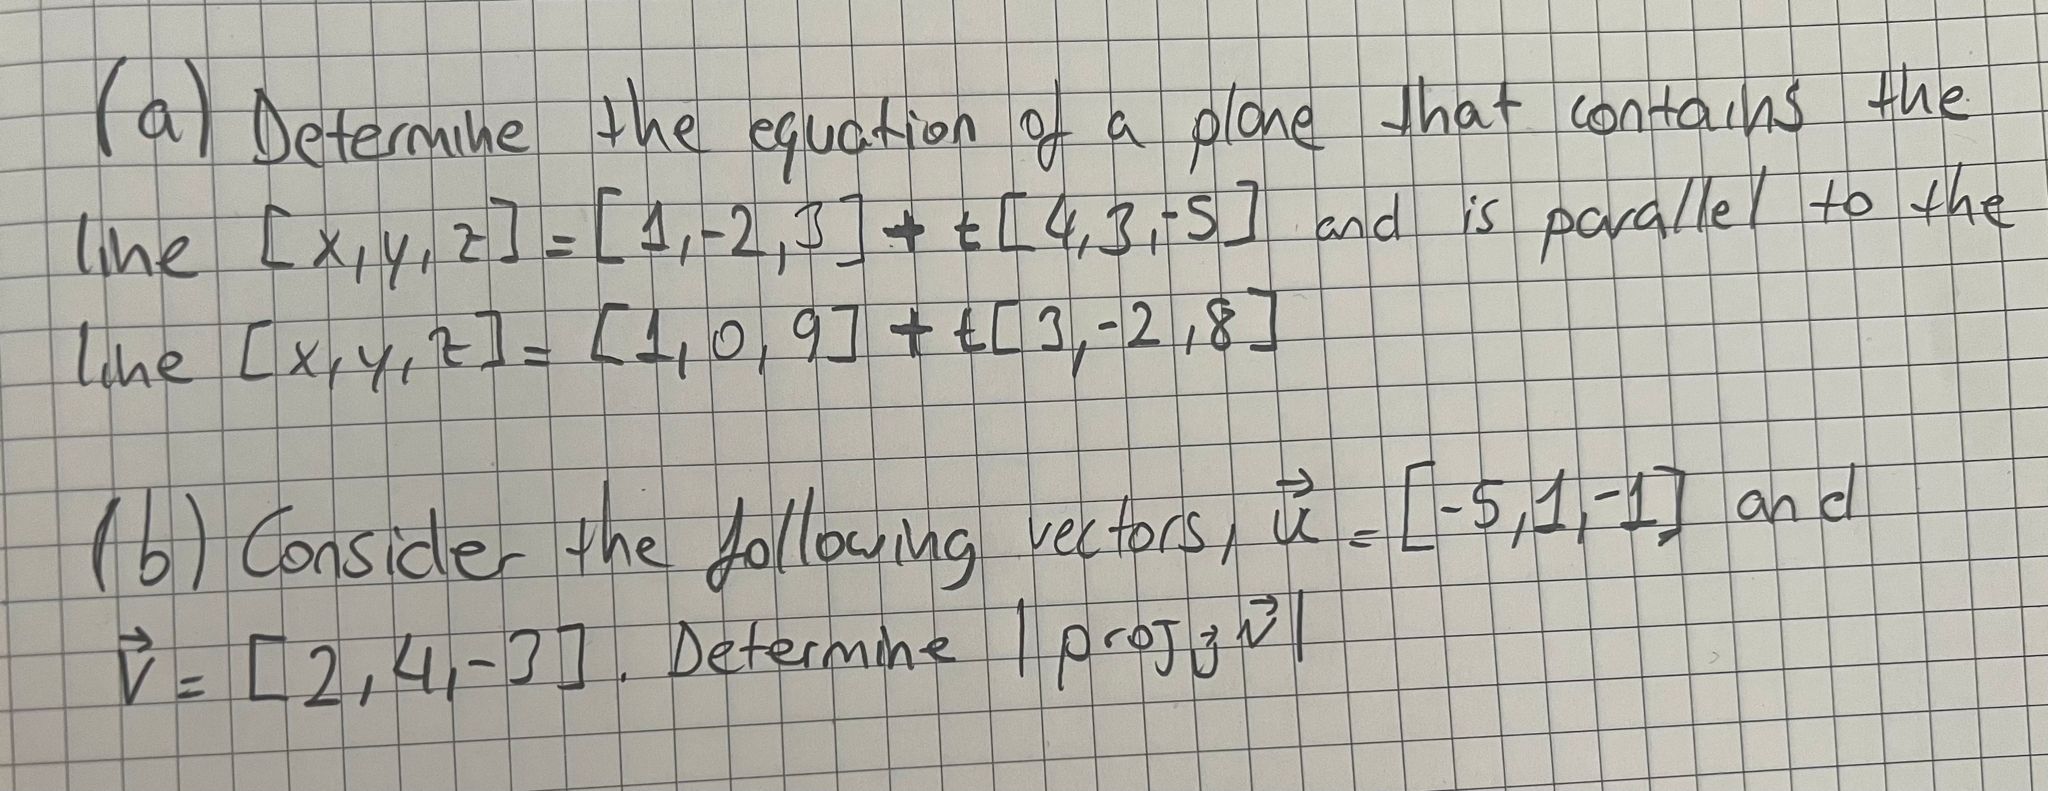 (a) Determine the equation of a plane that contains the
line [x, y, z] = [1, -2, 3] + t[4, 3, -5] and is parallel to the
line [x, y, z] = [1, 0, 9] + t[3, -2, 8]
(b) Consider the following vectors, u⃗ = [-5, 1, -1] and
v⃗ = [2, 4, -3]. Determine |proj_u⃗ v⃗|